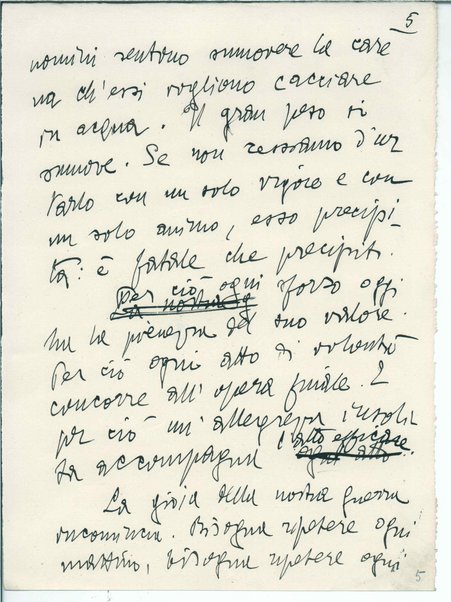 5
uomini sentono smuovere la care
na ch'essi vogliono cacciare
in acqua. Il gran peso si
smuove. Se non cessiamo d'ur
tarlo con un solo vigore e con
un solo animo, esso precipi-
ta: è fatale che precipiti.
Per ciò ogni sforzo oggi
La nostra
ha la pienezza del suo valore.
Per ciò ogni atto di volontà
concorre all'opera finale. E
per ciò un'allegrezza insoli
ta accompagna l'atto efficace.
ogni atto
La gioia della nostra guerra
incomincia. Bisogna ripetere ogni
mattino, bisogna ripetere ogni
5